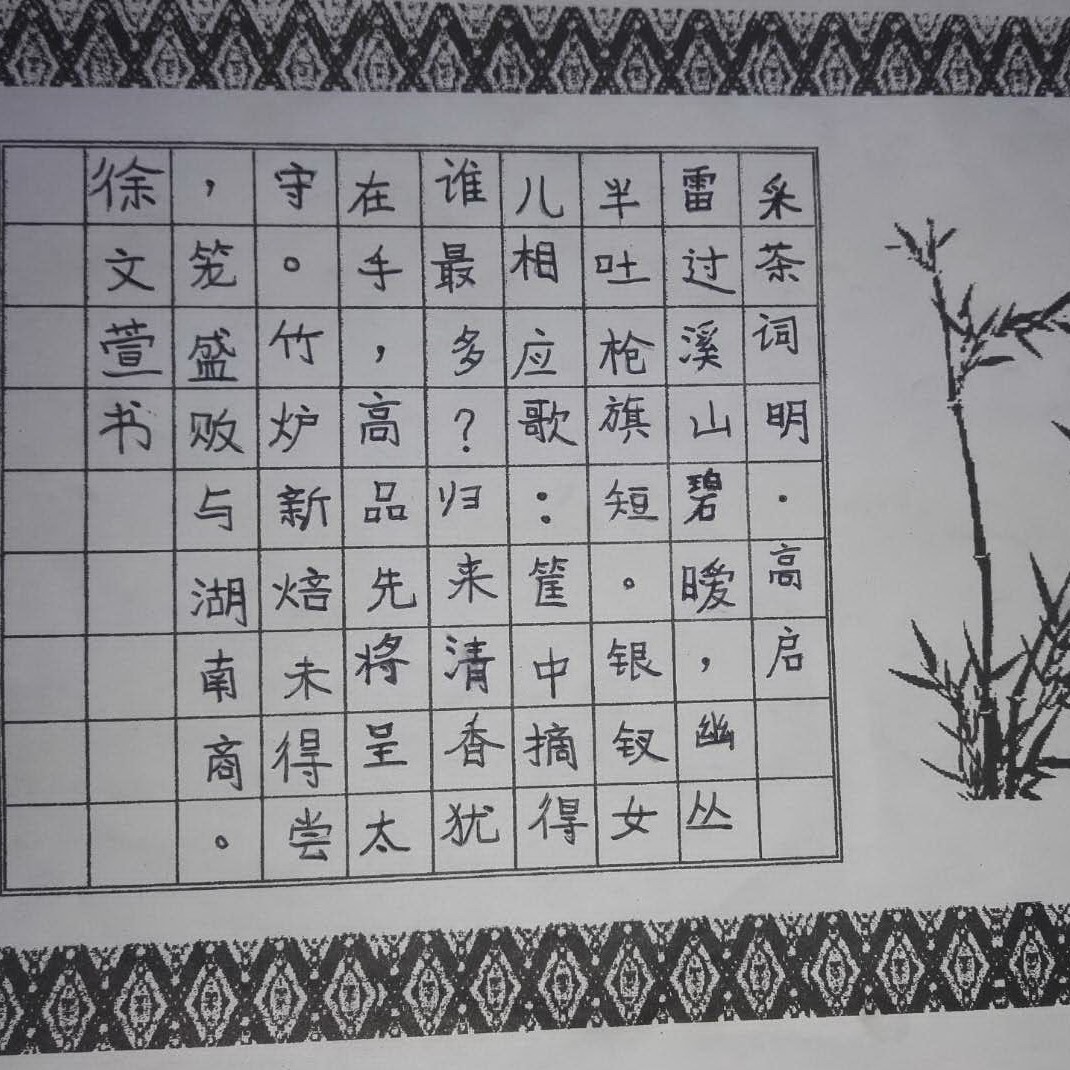 采茶词明·高启
雷过溪山碧暧，幽丛
半吐枪旗短。银钗女
儿相应歌：筐中摘得
谁最多？归来清香犹
在手，高品先将呈太
守。竹炉新焙未得尝
，笼盛败与湖南商。
徐文萱书